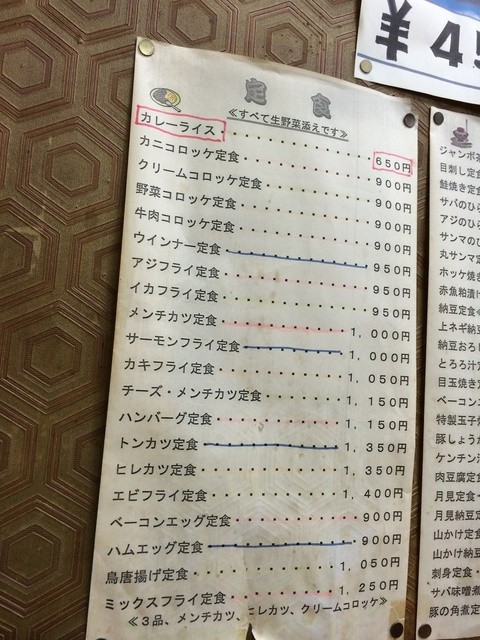 定食
≪すべて生野菜添えです≫
カレーライス・・・・・・・・・・650円
カニコロッケ定食・・・・・・・・900円
クリームコロッケ定食・・・・・・900円
野菜コロッケ定食・・・・・・・・900円
牛肉コロッケ定食・・・・・・・・900円
ウインナー定食・・・・・・・・・950円
アジフライ定食・・・・・・・・・950円
イカフライ定食・・・・・・・・・950円
メンチカツ定食・・・・・・・・1,000円
サーモンフライ定食・・・・・・1,000円
カキフライ定食・・・・・・・・1,050円
チーズ・メンチカツ定食・・・・1,150円
ハンバーグ定食・・・・・・・・1,150円
トンカツ定食・・・・・・・・・1,350円
ヒレカツ定食・・・・・・・・・1,350円
エビフライ定食・・・・・・・・1,400円
ベーコンエッグ定食・・・・・・・900円
ハムエッグ定食・・・・・・・・・900円
鳥唐揚げ定食・・・・・・・・・1,050円
ミックスフライ定食・・・・・・1,250円
≪3品、メンチカツ、ヒレカツ、クリームコロッケ≫
¥45
ジャンボ
目刺し定
鮭焼き定
サバのひ
アジのひ
サンマの
丸サンマ
ホッケ焼
赤魚粕漬
納豆定食
上ネギ納
納豆おろ
とろろ汁
目玉焼き
ベーコン
特製玉子
豚しょう
ケンチン
肉豆腐定
月見定食
月見納豆
山かけ定
山かけ納
刺身定食・
サバ味噌煮
豚の角煮定